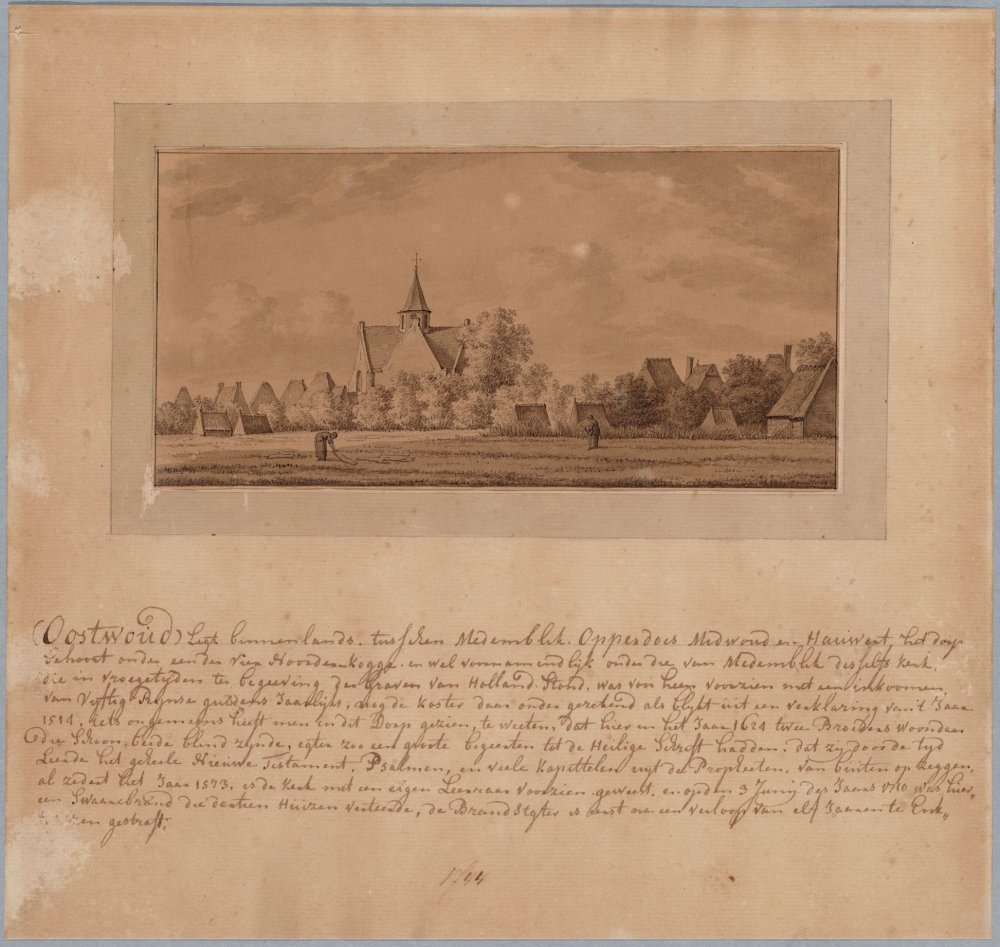 (Oostwoud) Leijt binnenlands. tusschen Medemblik. Opperdoes Midwoud en Hauwert, het dorp
Gehoort onder een der Vier Noorder-kogge. en wel voornamendlijk onder die van Medemblik desselfs kerk,
die in vroegetyden ter begeeving der Graven van Holland Stond, was voor heen voorzien met een inkoomen,
van Vyfftig Rynse guldens Jaarlijks, nog de koster daar onder gerekend als blykt uit een verklaring van 't Jaar
1514, iets ongemeens heeft men in dit Dorp gezien, te weeten, dat hier in het Jaar 1624 twee Broeders woonden
die Schoon beide blend zynde, egter zoo een groote begeerten tot de Heilige Schrift hadden, dat zy door de tyd
Leerde het geheele Nieuwe Testament, Psalmen, en veele kapettelen uyt de Propheeten, van buiten op zeggen,
al zedert het Jaar 1573, is de kerk met een eigen Leeraar voorzien geweest, en op den 3 Junij des Jaars 1710 was hier
een Swaare brand die dertien Huizen verteerde, de Brand Stigter is eerst na een verloop van elf Jaaren te Enk„
gestraft;
1744